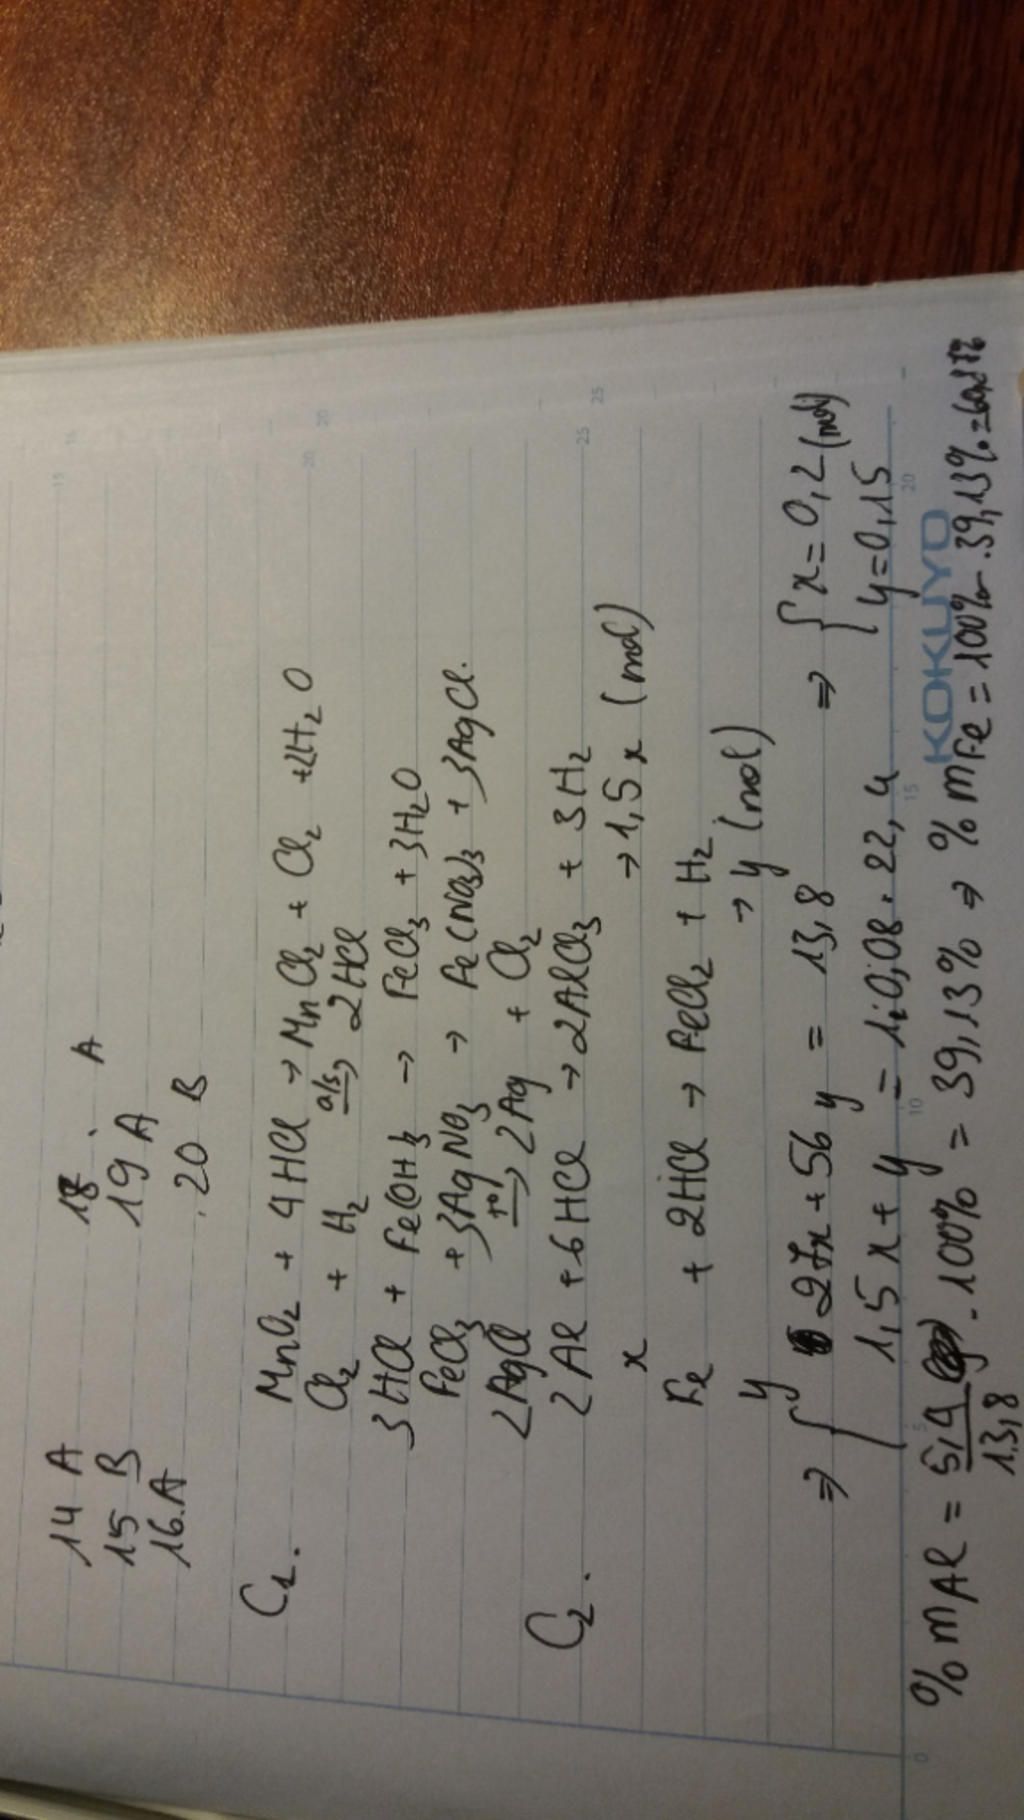 14 A
15 B
16.A
18 A
19 A
20 B
C₁.
MnO₂ + 4HCl → MnCl₂ + Cl₂ + 2H₂O
Cl₂ + H₂ —a/s→ 2HCl
3HCl + Fe(OH)₃ → FeCl₃ + 3H₂O
FeCl₃ + 3AgNO₃ → Fe(NO₃)₃ + 3AgCl.
2AgCl —t°→ 2Ag + Cl₂
C₂.
2Al + 6HCl → 2AlCl₃ + 3H₂
x → 1,5x (mol)
Fe + 2HCl → FeCl₂ + H₂
y → y (mol)
⇒ { 27x + 56y = 13,8 ⇒ { x = 0,2 (mol)
1,5x + y = 10,08 : 22,4 y = 0,15
% mAl = 5,4/13,8 . 100% = 39,13% ⇒ % mFe = 100% - 39,13% = 60,87%
KOKUYO
0 5 10 15 20 25
15 20 25